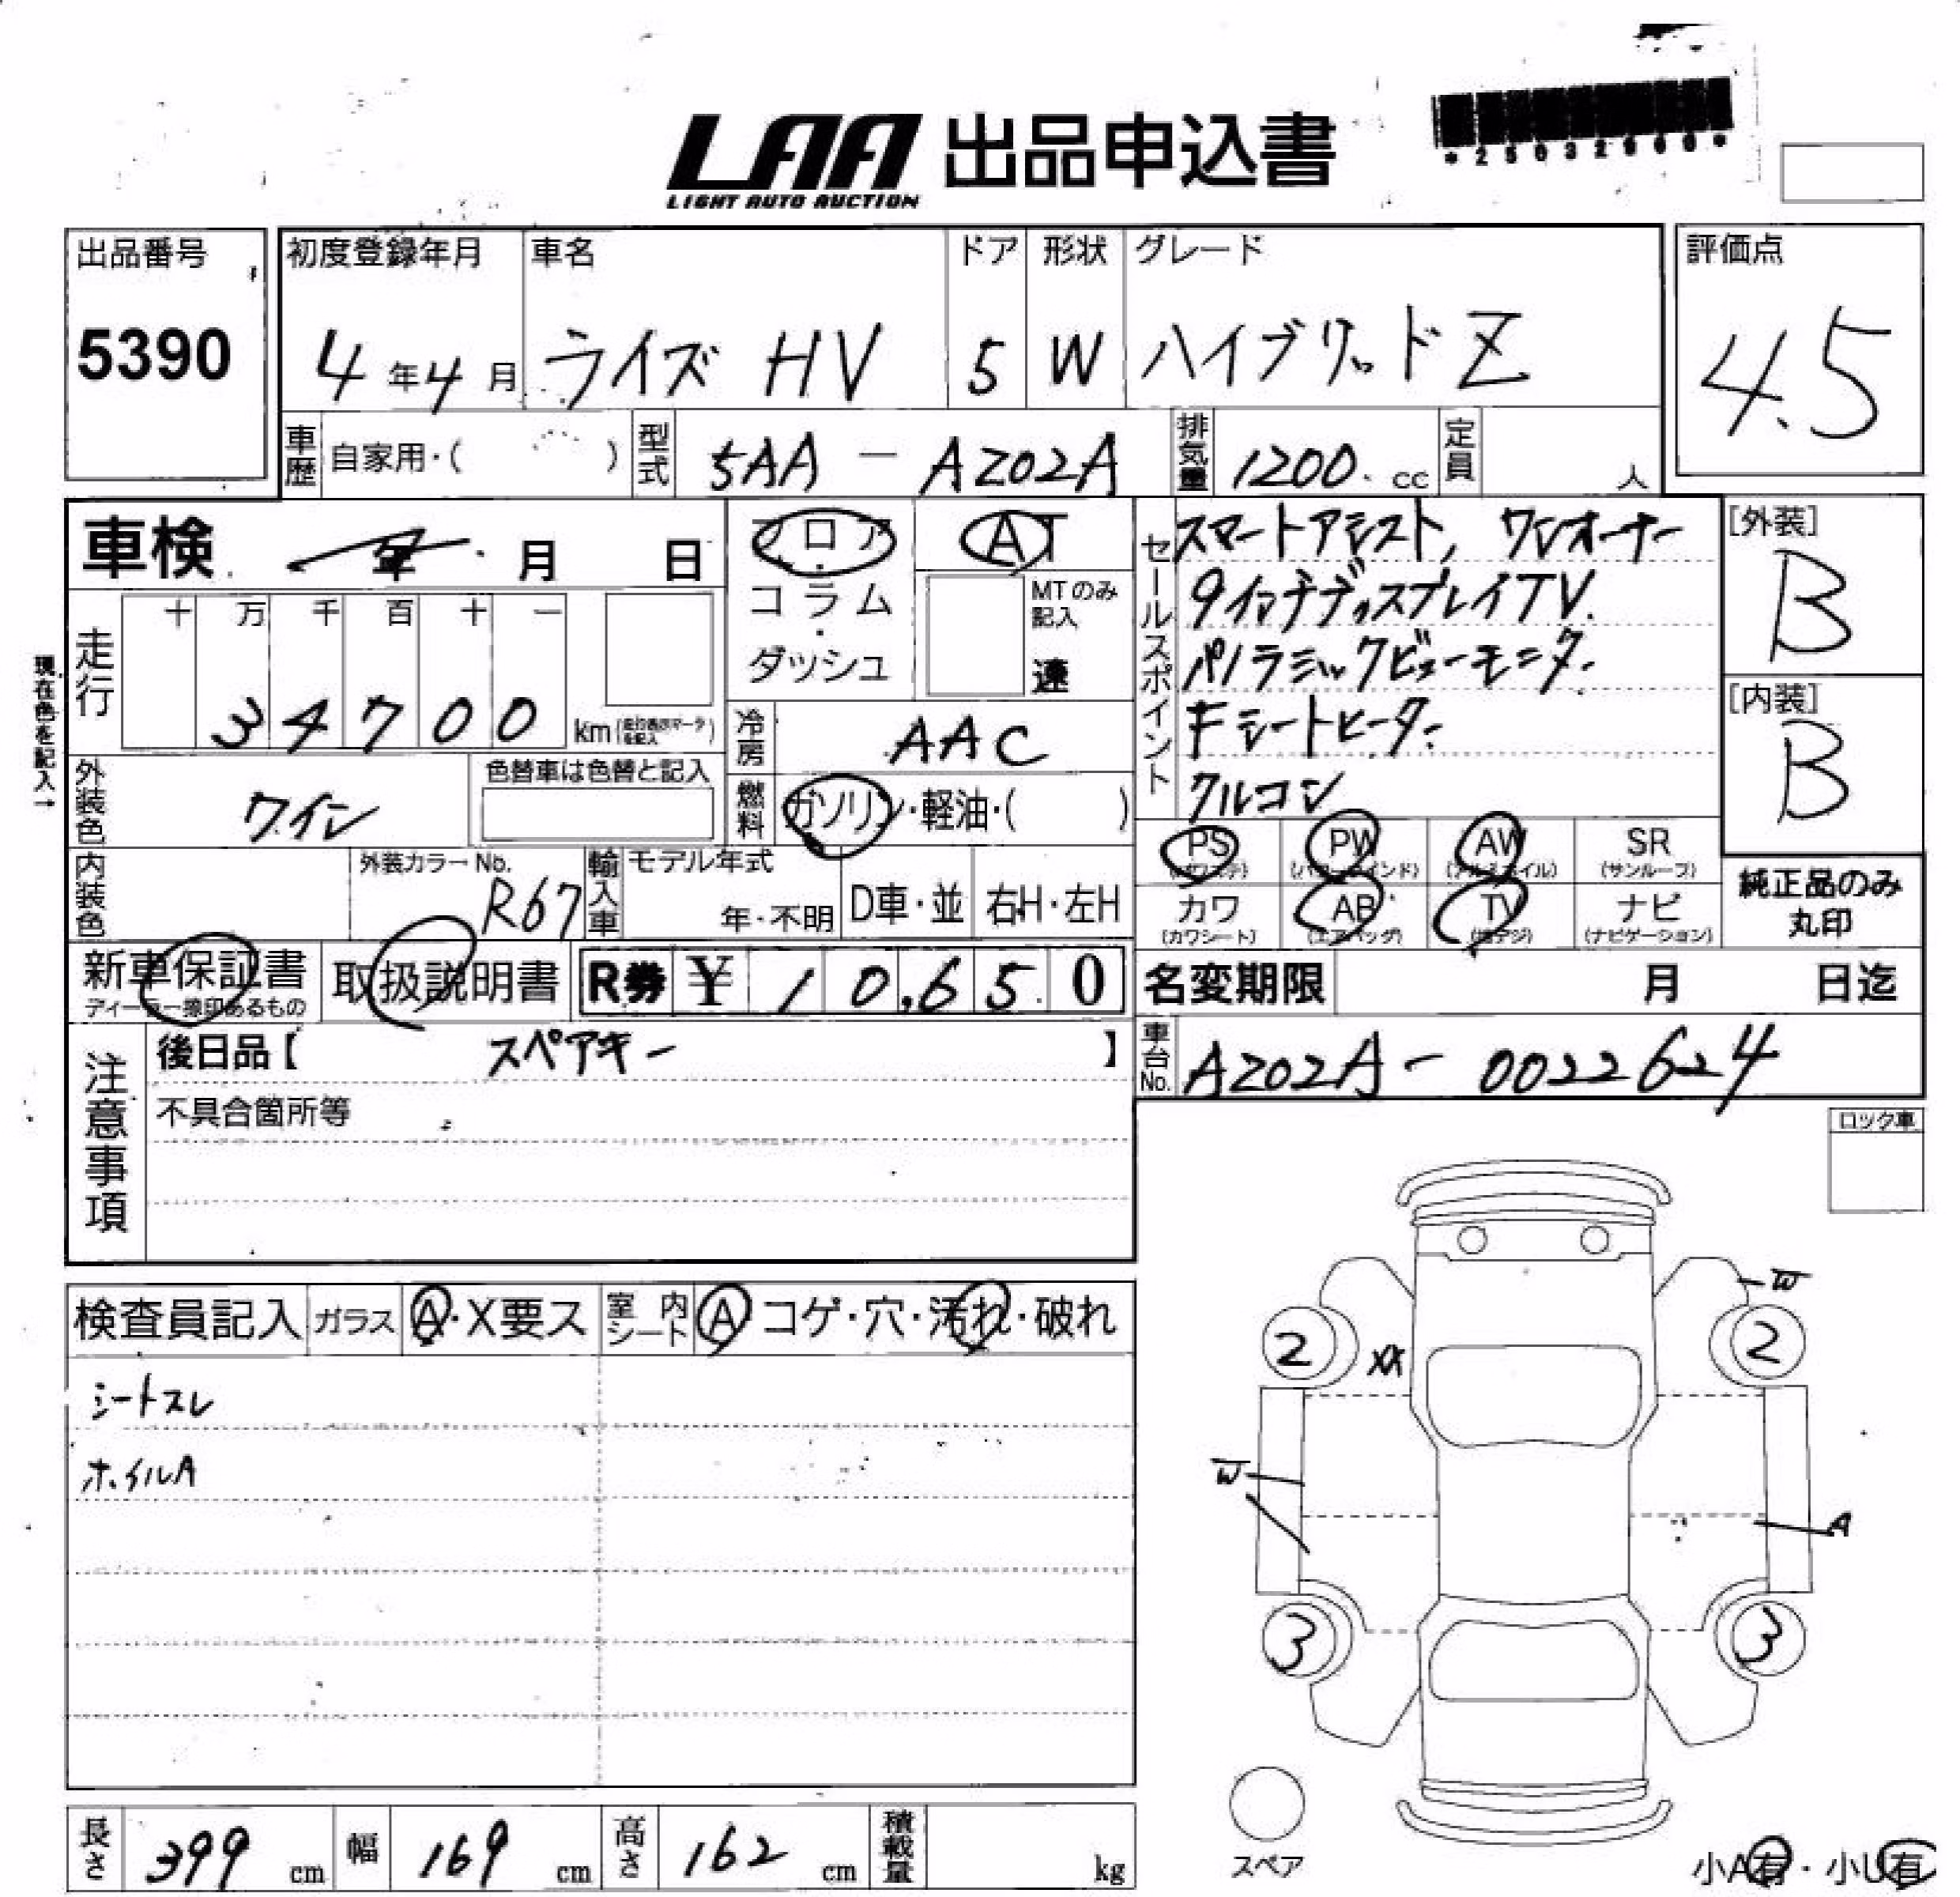 LAA 出品申込書
LIGHT AUTO AUCTION
出品番号
5390
初度登録年月
4年4月
車名
ライズ HV
ドア
5
形状
W
グレード
ハイブリッドZ
評価点
4.5
車歴 自家用・( )
型式 5AA-A202A
排気量 1200.cc
定員 人
車検 年 月 日
フロア
コラム
ダッシュ
AT
MTのみ記入
速
セールスポイント
スマートアシスト, ワンオーナー
9インチディスプレイTV.
パノラミックビューモニタ.
キシートヒーター.
クルコン
[外装]
B
[内装]
B
現在色を記入→
走行
十 万 千 百 十 一
3 4 7 0 0 km
冷房 AAC
外装色 ワイン
色替車は色替と記入
燃料 ガソリン・軽油・( )
PS PW AW SR
(サンルーフ)
カワ AB TV ナビ
(カワシート) (エアバッグ) (地デジ) (ナビゲーション)
純正品のみ
丸印
内装色
外装カラーNo.
R67
輸入車 モデル年式
年・不明
D車・並
右H・左H
新車保証書
取扱説明書
R券 ¥ 10,650
名変期限 月 日迄
注意事項
後日品【 スペアキー 】
不具合箇所等
車台No. A202A-0022624
ロック車
検査員記入 ガラス A・X要ス 室内シート A コゲ・穴・汚れ・破れ
シートスレ
ホイルA
W
2 XX 2
W
A
3 3
スペア
小A有・小U有
長さ 399 cm
幅 169 cm
高さ 162 cm
積載量 kg